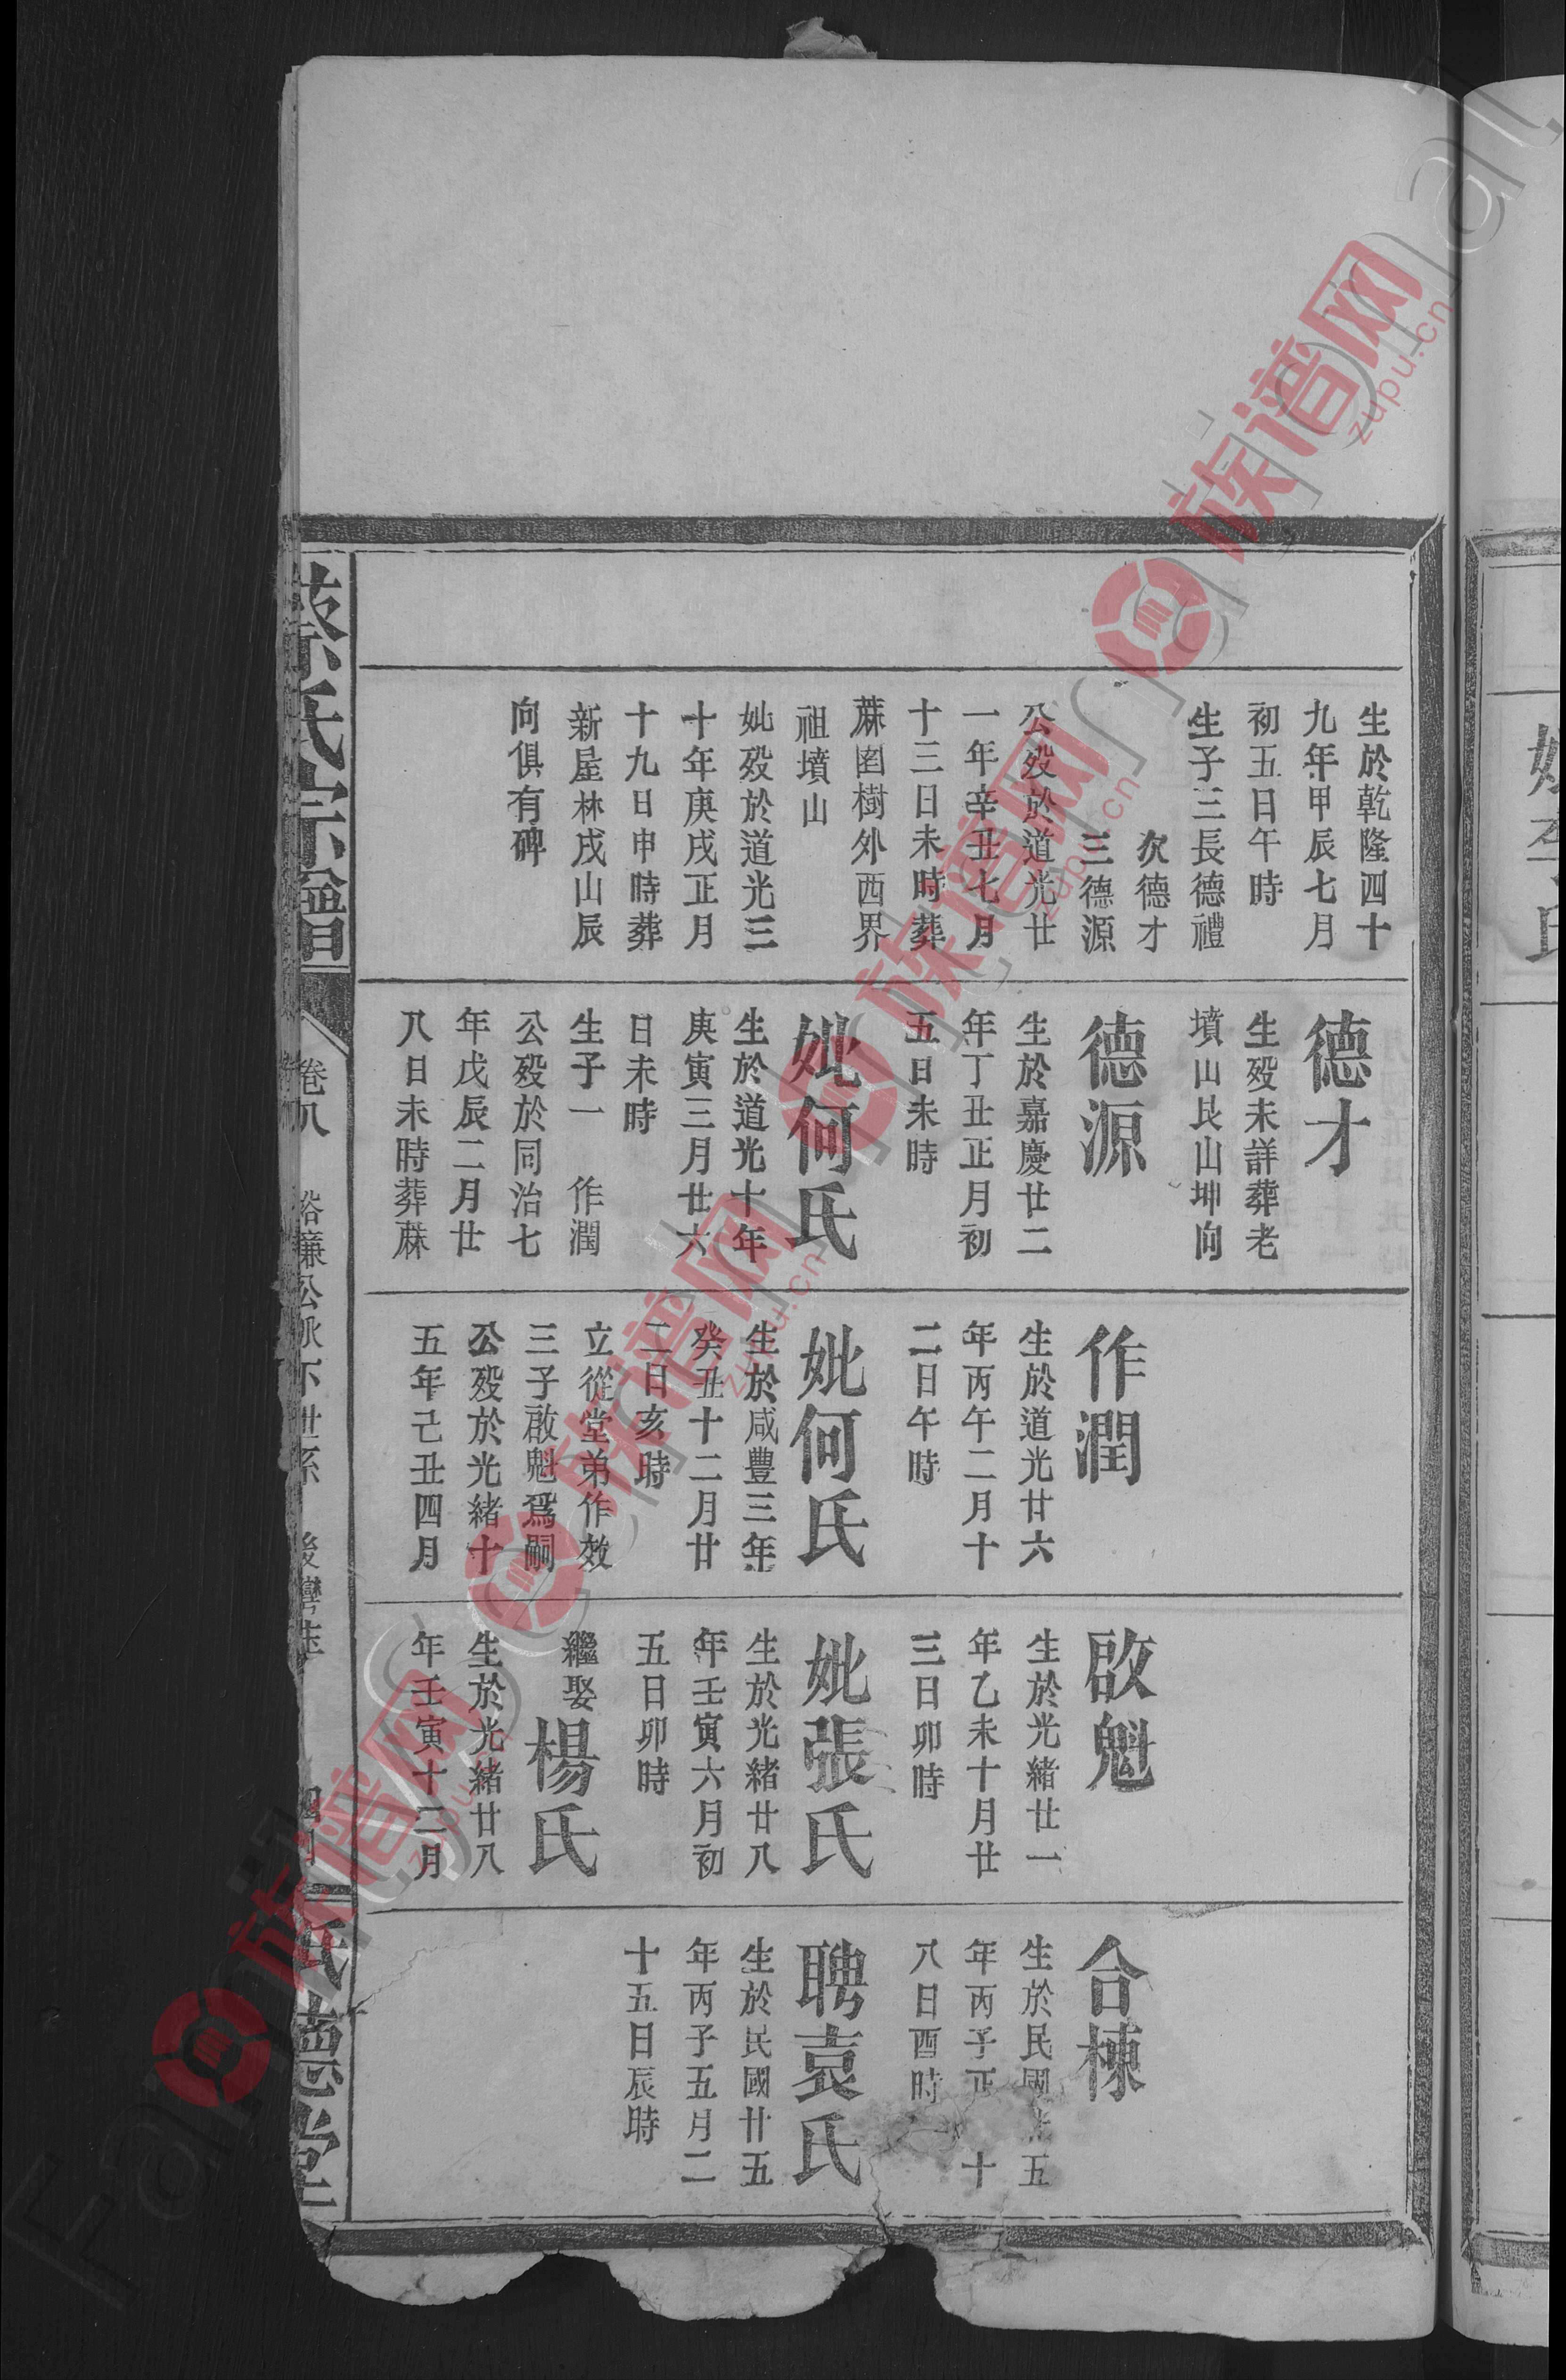 生於乾隆四十
九年甲辰七月
初五日午時
生子三長德禮
次德才
三德源
公歿於道光廿
一年辛丑七月
十三日未時葬
蔴園樹外西界
祖墳山
妣歿於道光三
十年庚戌正月
十九日申時葬
新屋林戌山辰
向俱有碑
德才
生歿未詳葬老
墳山艮山坤向
德源
生於嘉慶廿二
年丁丑正月初
五日未時
妣何氏
生於道光十年
庚寅三月廿六
日未時
生子一 作潤
公歿於同治七
年戊辰二月廿
八日未時葬蔴
作潤
生於道光廿六
年丙午二月十
二日午時
妣何氏
生於咸豐三年
癸丑十二月廿
二日亥時
立從堂弟作效
三子啟魁爲嗣
公歿於光緒十
五年己丑四月
啟魁
生於光緒廿一
年乙未十月廿
三日卯時
妣張氏
生於光緒廿八
年壬寅六月初
五日卯時
繼娶楊氏
生於光緒廿八
年壬寅十二月
合棟
生於民國 五
年丙子正 十
八日酉時
聘袁氏
生於民國廿五
年丙子五月二
十五日辰時
蔡氏宗譜
卷八
公派下世系
德堂
妣李氏
族谱网
zupu.cn